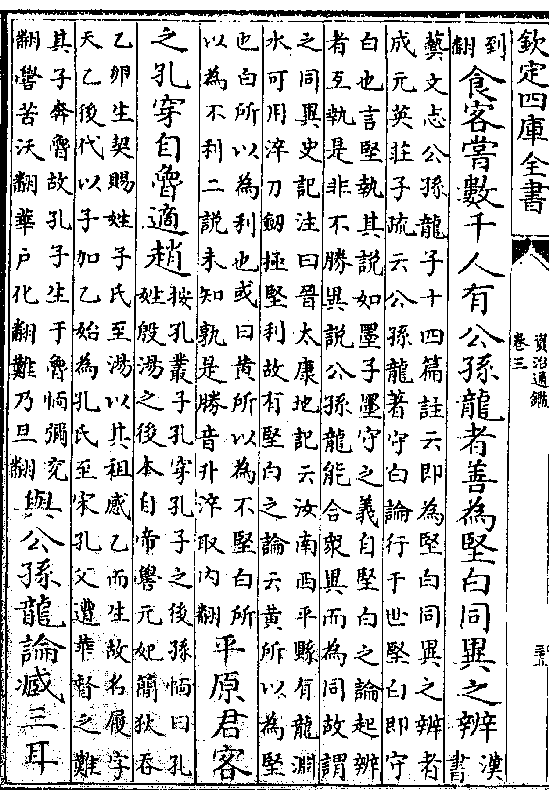 欽定四庫全書
資治通鑑
卷三
到
翻
食客嘗數千人有公孫龍者善為堅白同異之辨
漢
書
藝文志公孫龍子十四篇註云即為堅白同異之辨者
成元英莊子疏云公孫龍著守白論行于世堅白即守
白也言堅執其說如墨子墨守之義自堅白之論起辨
者互執是非不勝異說公孫龍能合衆異而為同故謂
之同異史記注曰晉太康地記云汝南西平縣有龍淵
水可用淬刀劒極堅利故有堅白之論云黄所以為堅
也白所以為利也或曰黄所以為不堅白所
以為不利二說未知孰是勝音升淬取内翻
平原君客
之孔穿自魯適趙
按孔叢子孔穿孔子之後孫愐曰孔
姓殷湯之後本自帝嚳元妃簡狄吞
乙卵生契賜姓子氏至湯以其祖感乙而生故名履字
天乙後代以子加乙始為孔氏至宋孔父遭華督之難
其子奔魯故孔子生于魯愐彌兖
翻嚳苦沃翻華户化翻難乃旦翻
與公孫龍論臧三耳